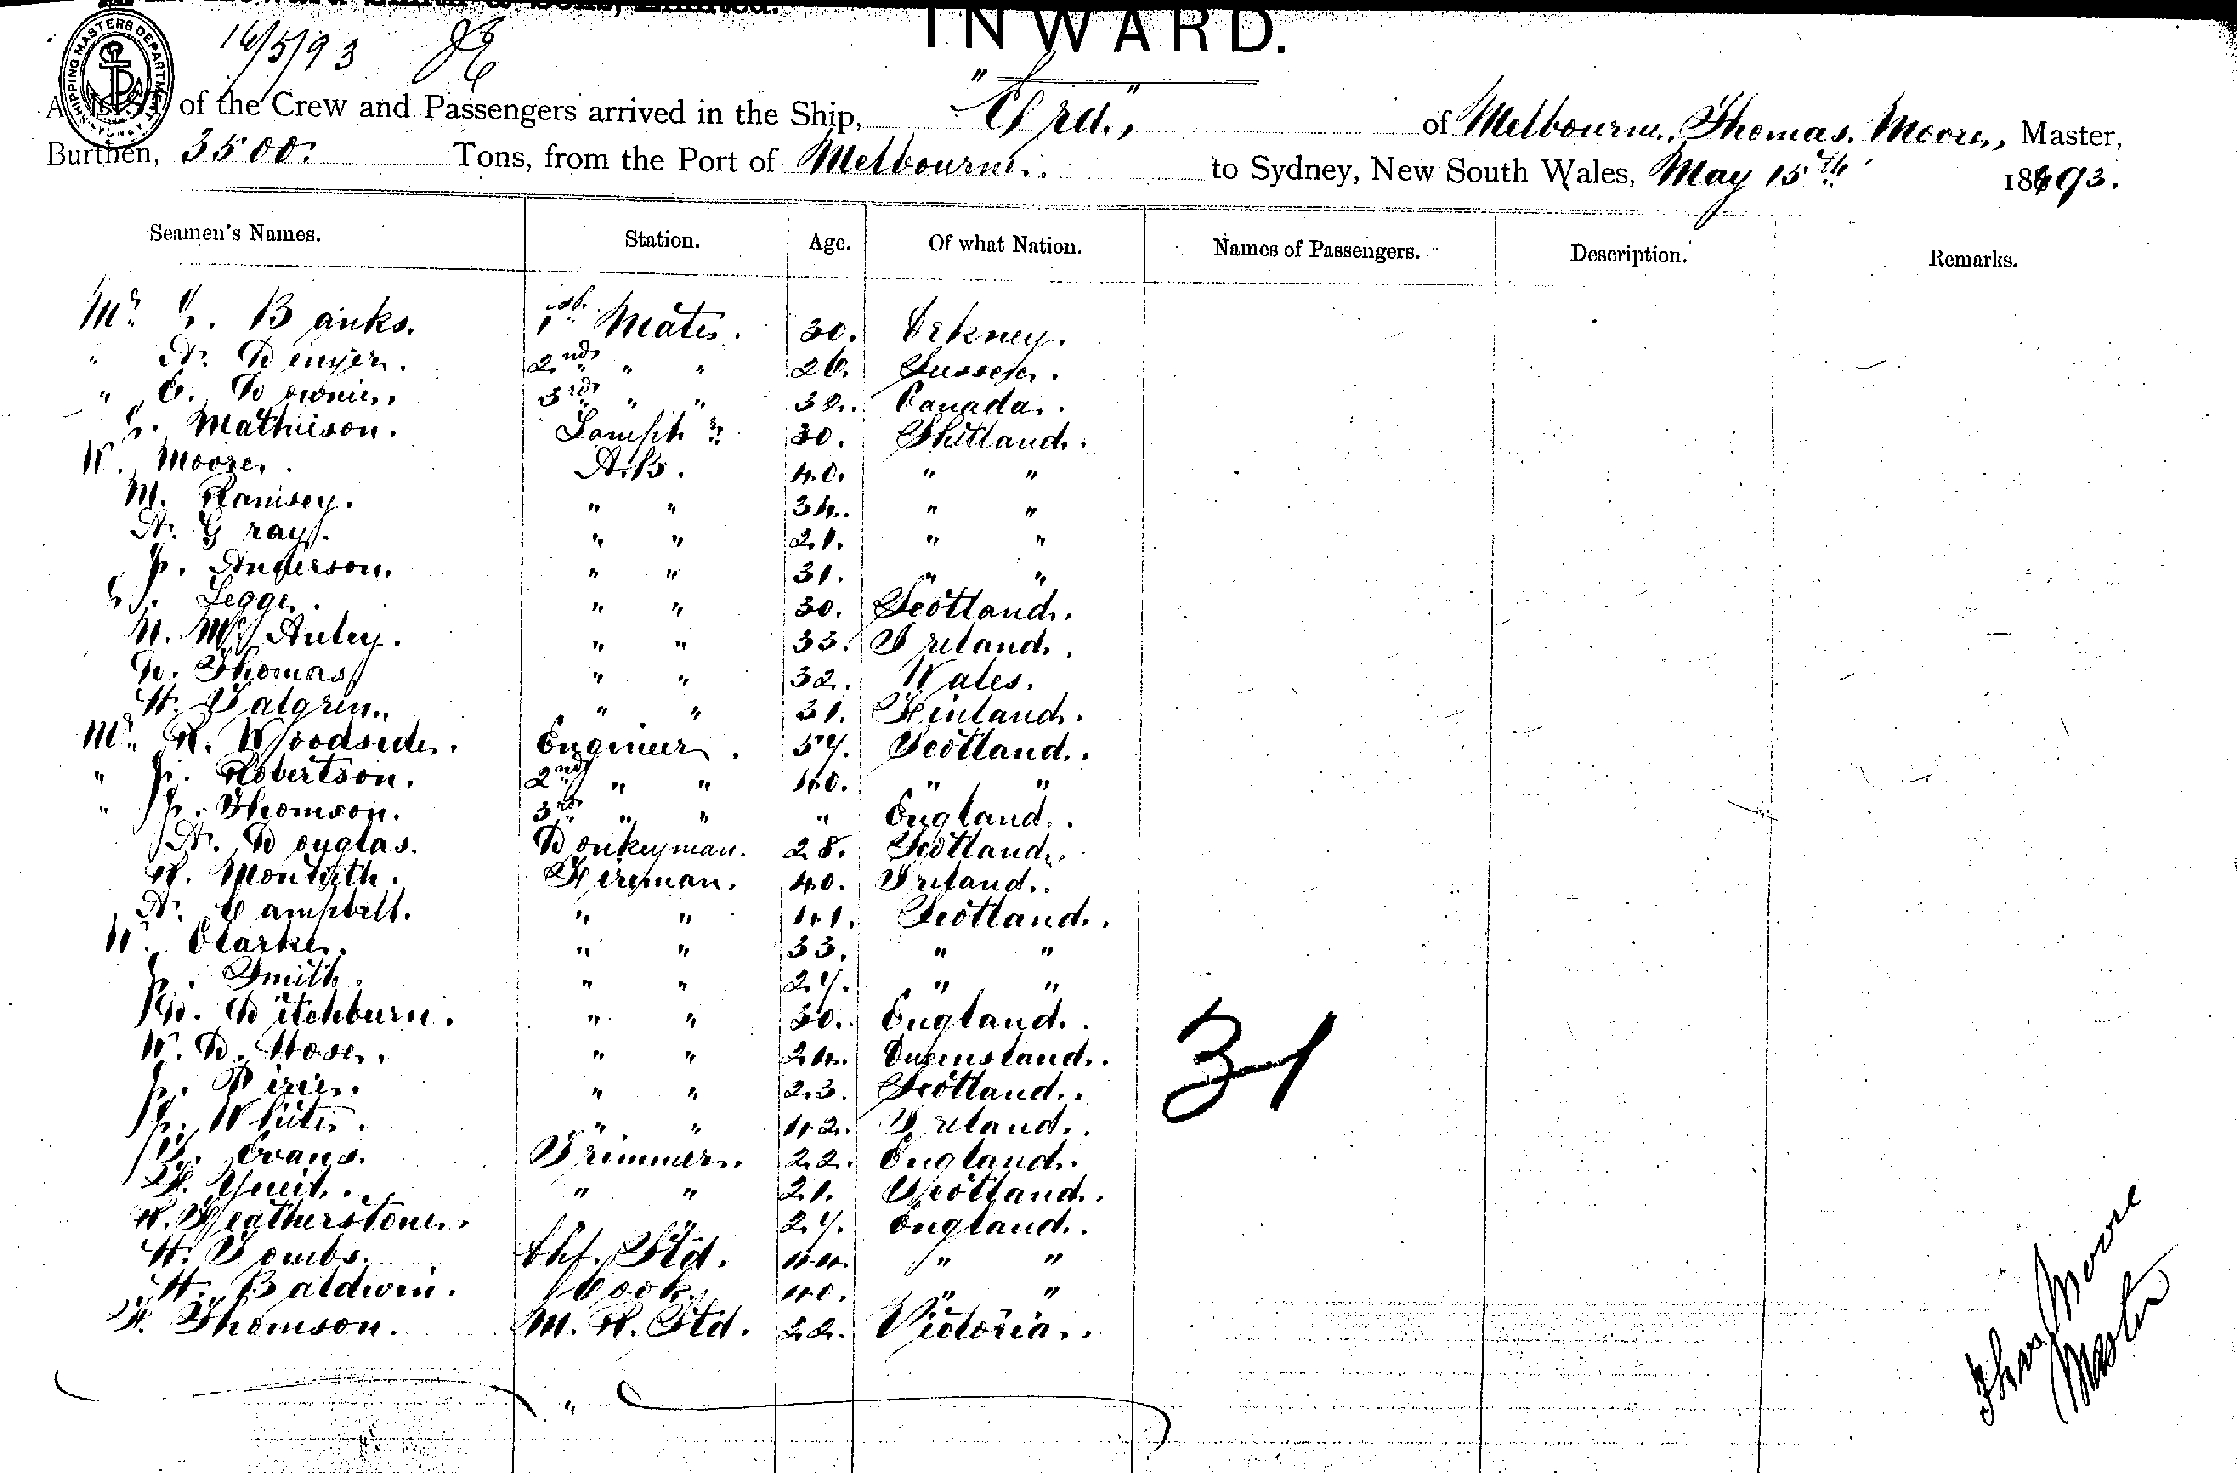 INWARD.
16/5/93
SHIPPING MASTERS DEPARTMENT
of the Crew and Passengers arrived in the Ship, of Melbourne, Thomas Moore, Master,
Burthen, 3500. Tons, from the Port of Melbourne. to Sydney, New South Wales, May 15th 1893.
Seamen's Names. Station. Age. Of what Nation. Names of Passengers. Description. Remarks.
Mr. Banks. 1st Mate. 30. Orkney.
" A. Denyer. 2nd " " 26. Sussex.
" C. Downie. 3rd " " 32. Canada.
Mathieson. Lamp 30. Shetland.
W. Moore. A.B. 40. " "
M. Ramsey. " " 34. " "
A. Gray. " " 21. " "
J. Anderson. " " 31. " "
Legge. " " 30. Scotland.
N. McAuley. " " 33. Ireland.
D. Thomas " " 32. Wales.
H. " " 31. Finland.
Mr. R. Woodside. Engineer. 57. Scotland.
" J. Robertson. 2nd " " 40. " "
" J. Thomson. 3rd " " " England.
A. Douglas. Donkeyman. 28. Scotland.
R. Monteith. Fireman. 40. Ireland.
A. Campbell. " " 41. Scotland.
W. Clarke. " " 33. " "
J. Smith. " " 27. " "
Ditchburn. " " 30. England.
W. D. Hose. " " 24. Queensland.
J. Pirie. " " 23. Scotland.
J. White. " " 42. Ireland.
Evans. Trimmer. 22. England.
" " 21. Scotland.
R. Featherstone. " " 27. England.
H. Tombs. Chf. Std. 44. " "
H. Baldwin. Cook. 40. " "
F. Thomson. M. R. Std. 22. Victoria.
31
"
Thos Moore
Master